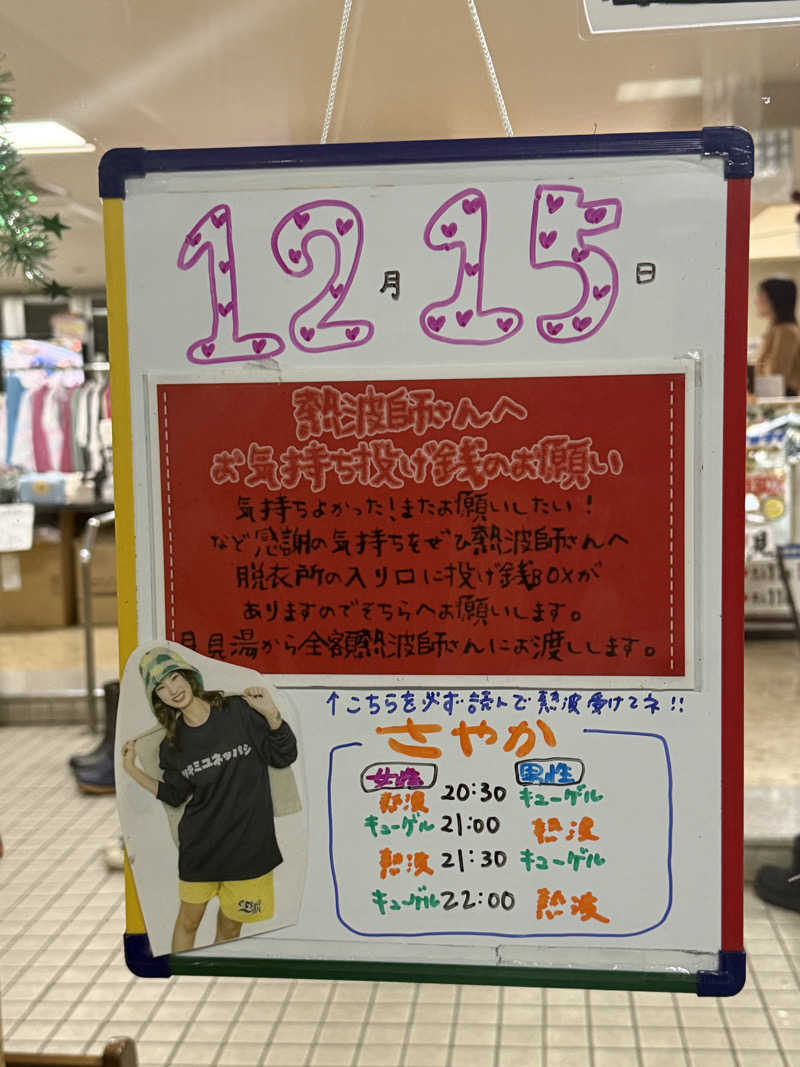 12月15日
熱波師さんへ
お気持ち投げ銭のお願い
気持ちよかった!またお願いしたい!
など感謝の気持ちをぜひ熱波師さんへ
脱衣所の入り口に投げ銭BOXが
ありますのでそちらへお願いします。
月見湯から全額熱波師さんにお渡しします。
↑こちらを必ず読んで熱波受けてネ!!
さやか
女性 男性
熱波 20:30 キューゲル
キューゲル 21:00 熱波
熱波 21:30 キューゲル
キューゲル 22:00 熱波